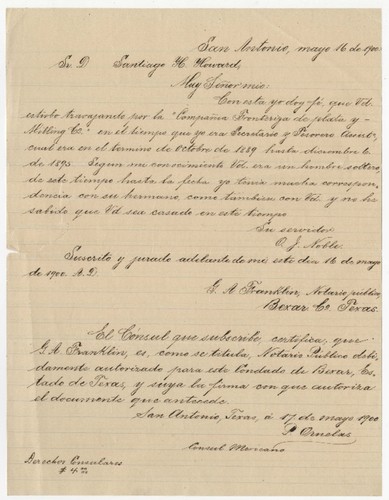 San Antonio, mayo 16 de 1900
Sr. D. Santiago H. Howard,
Muy Señor mio:
Con esta yo doy fé, que Vd.
estubo travajando por la "Compañia Fronteriza de plata y
Milling Co." en el tiempo que yo era Secretario y Tesorero
cual era en el termino de Octubre de 1889 hasta diciembre 1o
de 1895. Segun mi conocimiento Vd. era un hombre soltero,
de este tiempo hasta la fecha yo tenia mucha correspon-
dencia con su hermano como tambien con Vd. y no he
sabido que Vd sea casado en este tiempo
Su servidor
O. J. Noble.
Suscrito y jurado adelante de mi este dia 16 de mayo
de 1900. A.D.
G. A. Franklin, Notario publico,
Bexar Co. Texas.
El Consul que subscribe, certifica, que
G. A. Franklin, es, como se titula, Notario Público debi-
damente autorizado para este Condado de Bexar, Es-
tado de Texas, y suya la firma con que autoriza
el documento que antecede.
San Antonio, Texas, á 17 de mayo 1900
P. Ornelas
Consul Mexicano
Derechos Consulares
$ 4.72